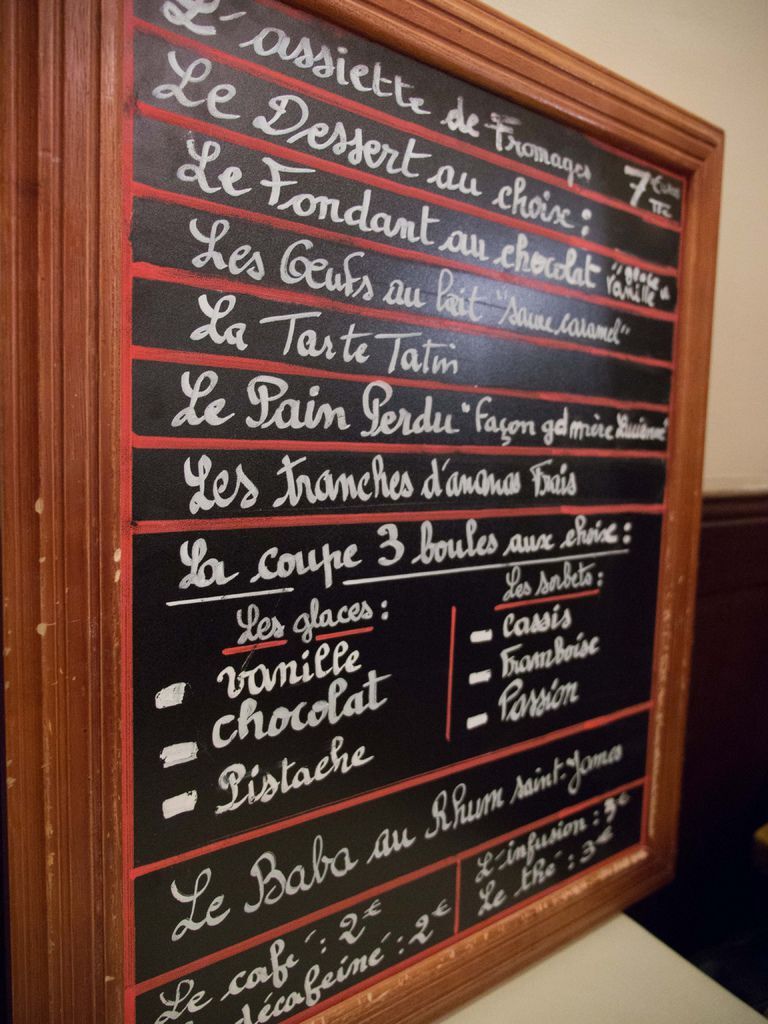 L'assiette de Fromages
Le Dessert au choix : 7 Euros TTC
Le Fondant au choclat "glace vanille"
Les Œufs au lait "sauce caramel"
La Tarte Tatin
Le Pain Perdu "façon gd mère Lucienne"
Les tranches d'ananas Frais
La coupe 3 boules aux choix :
Les glaces :
- vanille
- chocolat
- Pistache
Les sorbets :
- cassis
- Framboise
- Passion
Le Baba au Rhum saint-James
Le café : 2€
décafeiné : 2€
L'infusion : 3€
Le thé : 3€